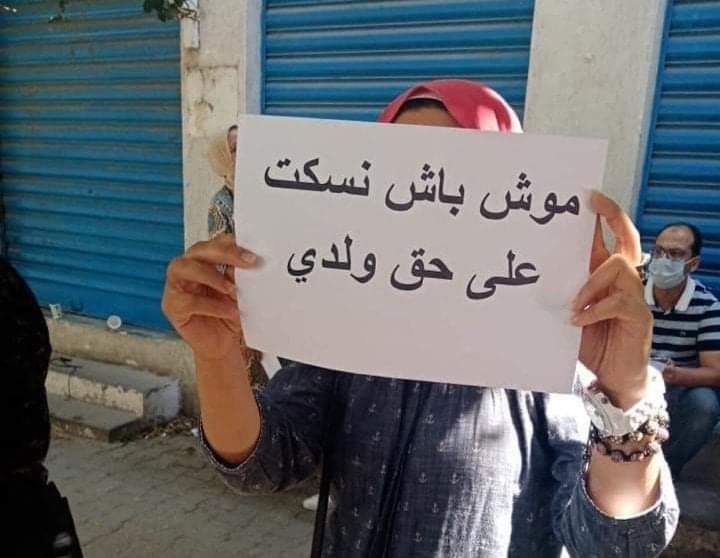 موش باش نسكت
على حق ولدي